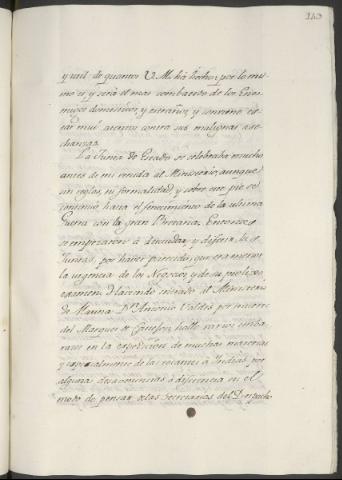 143
y util de quantos V. M. ha hecho; por lo mis-
mo es, y será el mas combatido de los Ene-
migos domesticos, y extraños, y conviene es-
tar mui atentos contra sus malignas ase-
chanzas.
La Junta de Estado se celebraba mucho
antes de mi venida al Ministerio, aunque
sin reglas, ni formalidad y sobre ese pie se
continuó hasta el fenecimiento de la ultima
Guerra con la gran Bretaña. Entonces
se empezaron á descuidar y diferir las
Juntas, por haber parecido, que era menor
la urgencia de los Negocios, y de su prolixo
examen. Haviendo entrado al Ministerio
de Marina Dn. Antonio Valdés por muerte
del Marques de Castejon, halló varios emba-
razos en la expedicion de muchas materias
y especialmente de las tocantes á Indias por
alguna desavenencia ó diferencia en el
modo de pensar de las Secretarias del Despacho